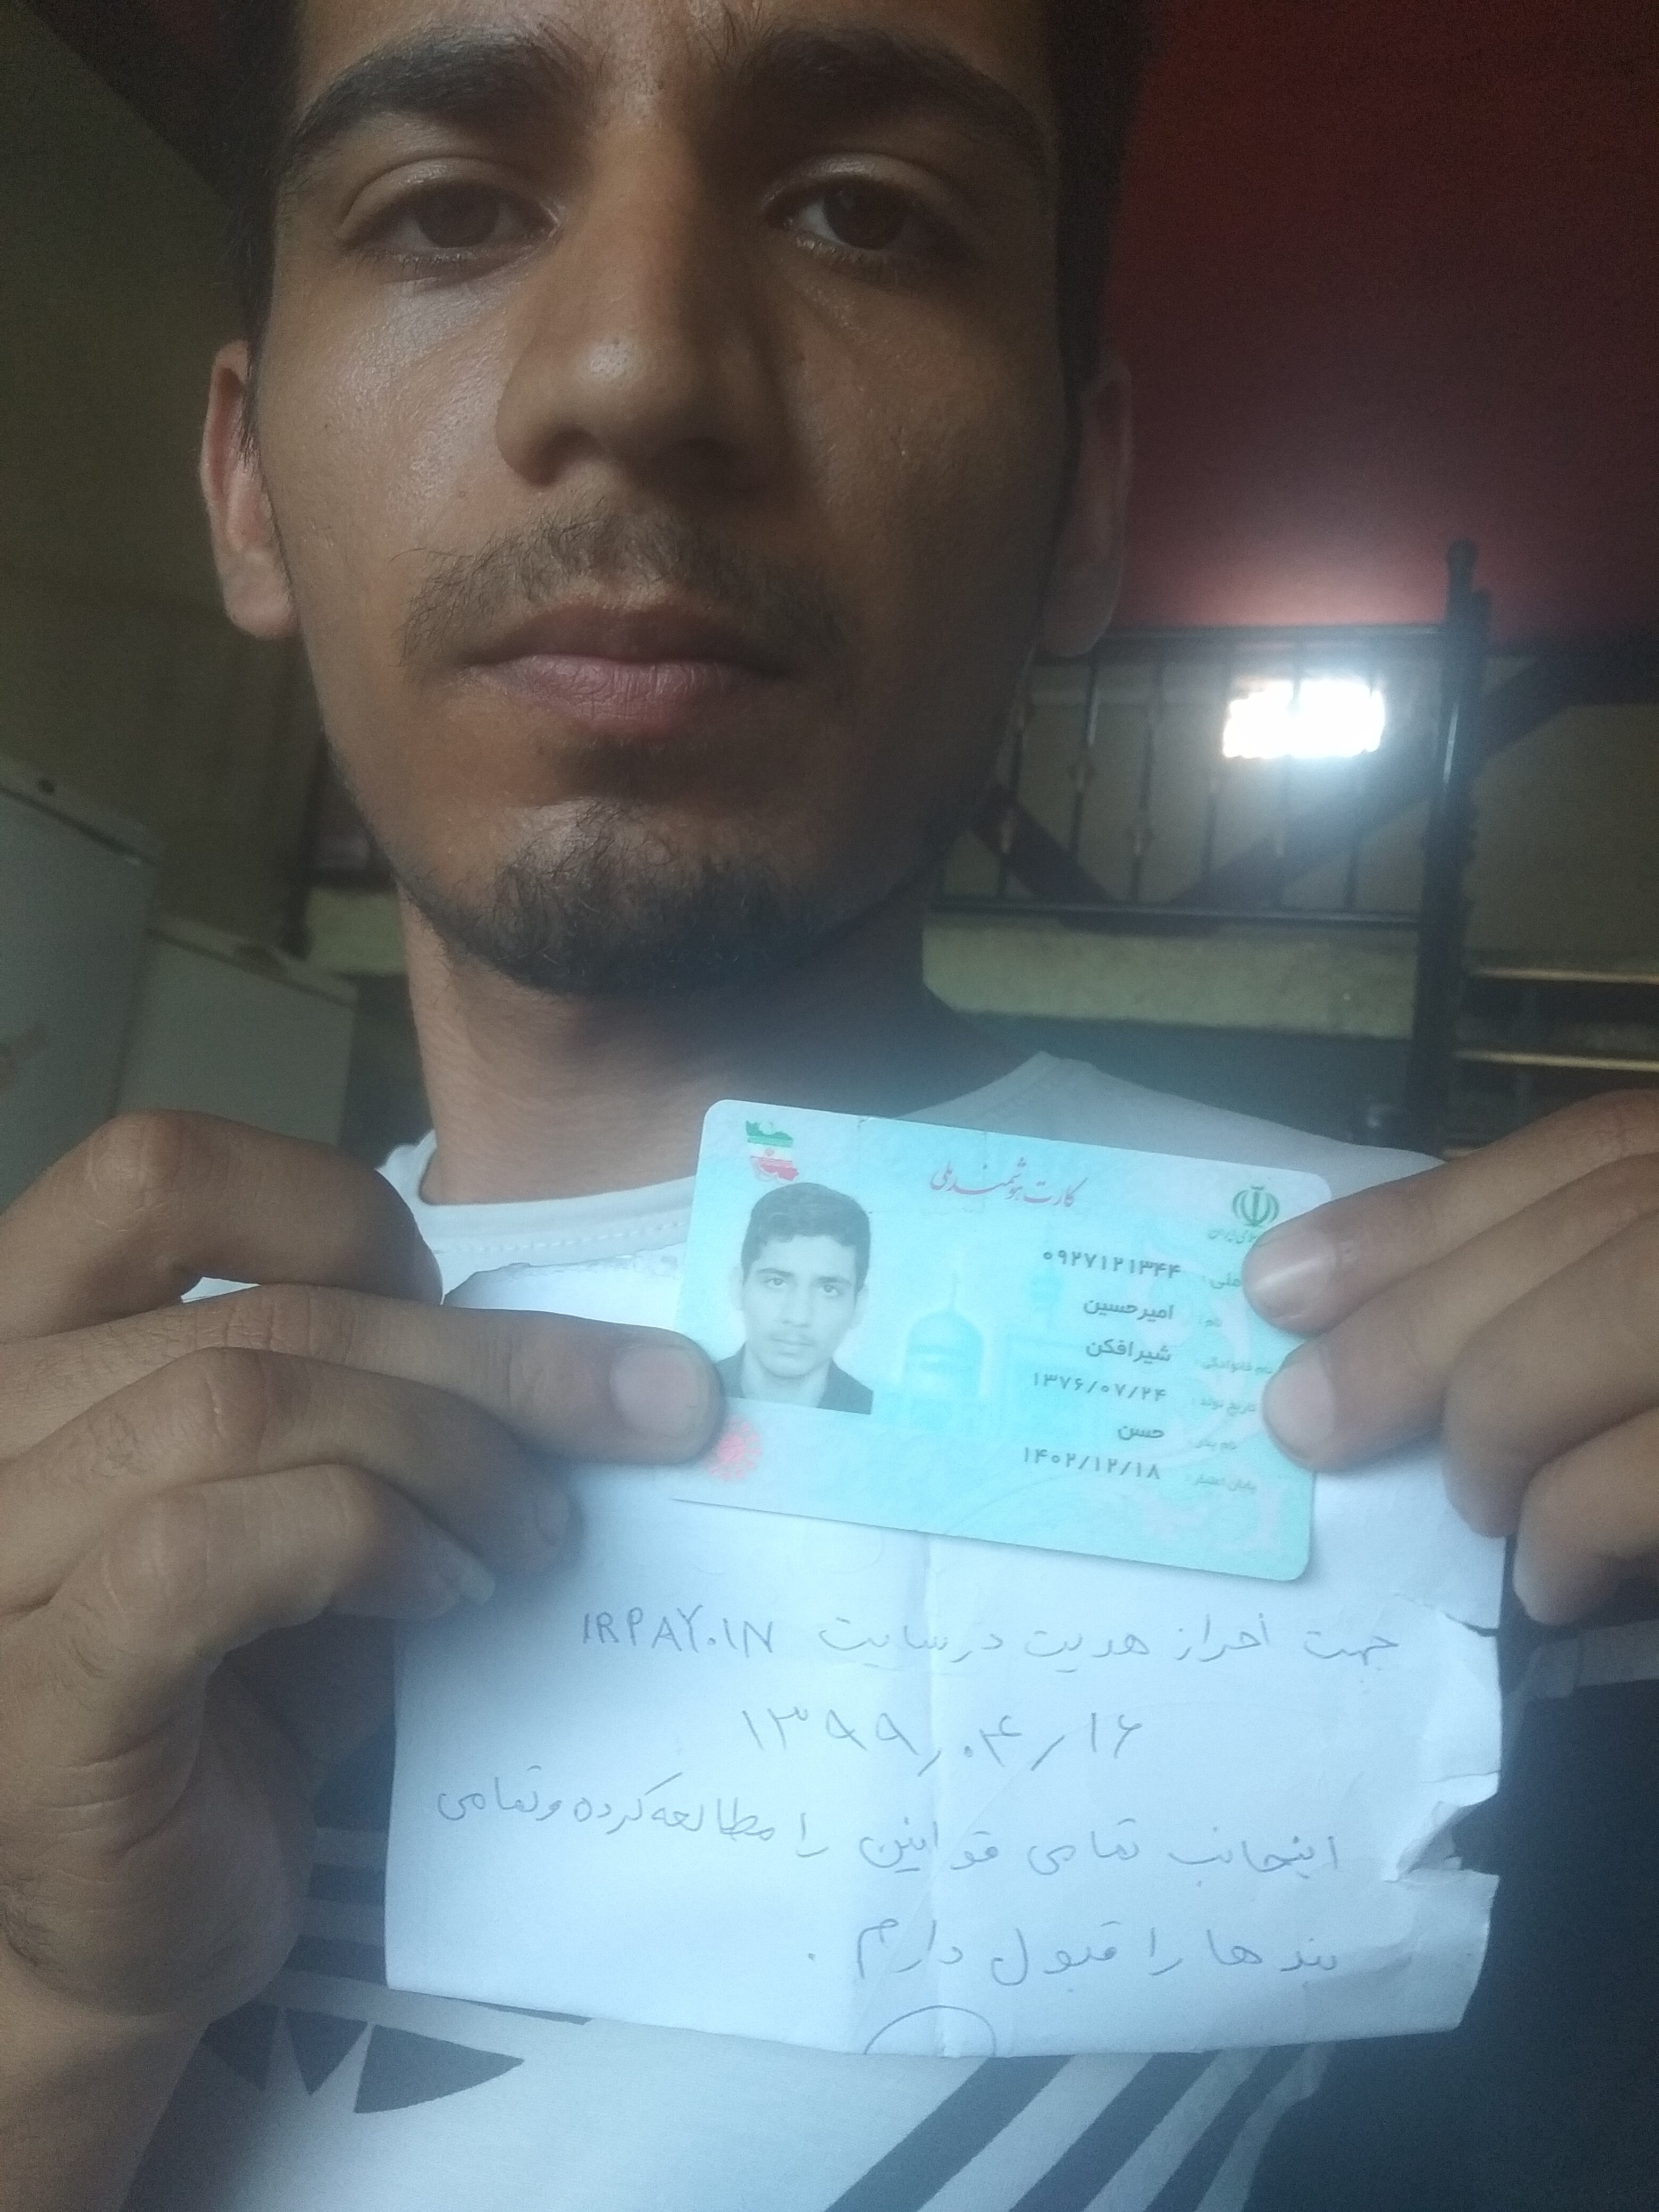 کارت هوشمند ملی
ملی: ۰۹۲۷۱۲۱۳۴۴
نام: امیرحسین
نام خانوادگی: شیرافکن
تاریخ تولد: ۱۳۷۶/۰۷/۲۴
نام پدر: حسن
پایان اعتبار: ۱۴۰۲/۱۲/۱۸
جهت احراز هدیت در سایت IRPAY.IN
۱۳۹۹/۰۴/۱۶
اینجانب تمامی قوانین را مطالعه کرده و تمامی
بند ها را قبول دارم .